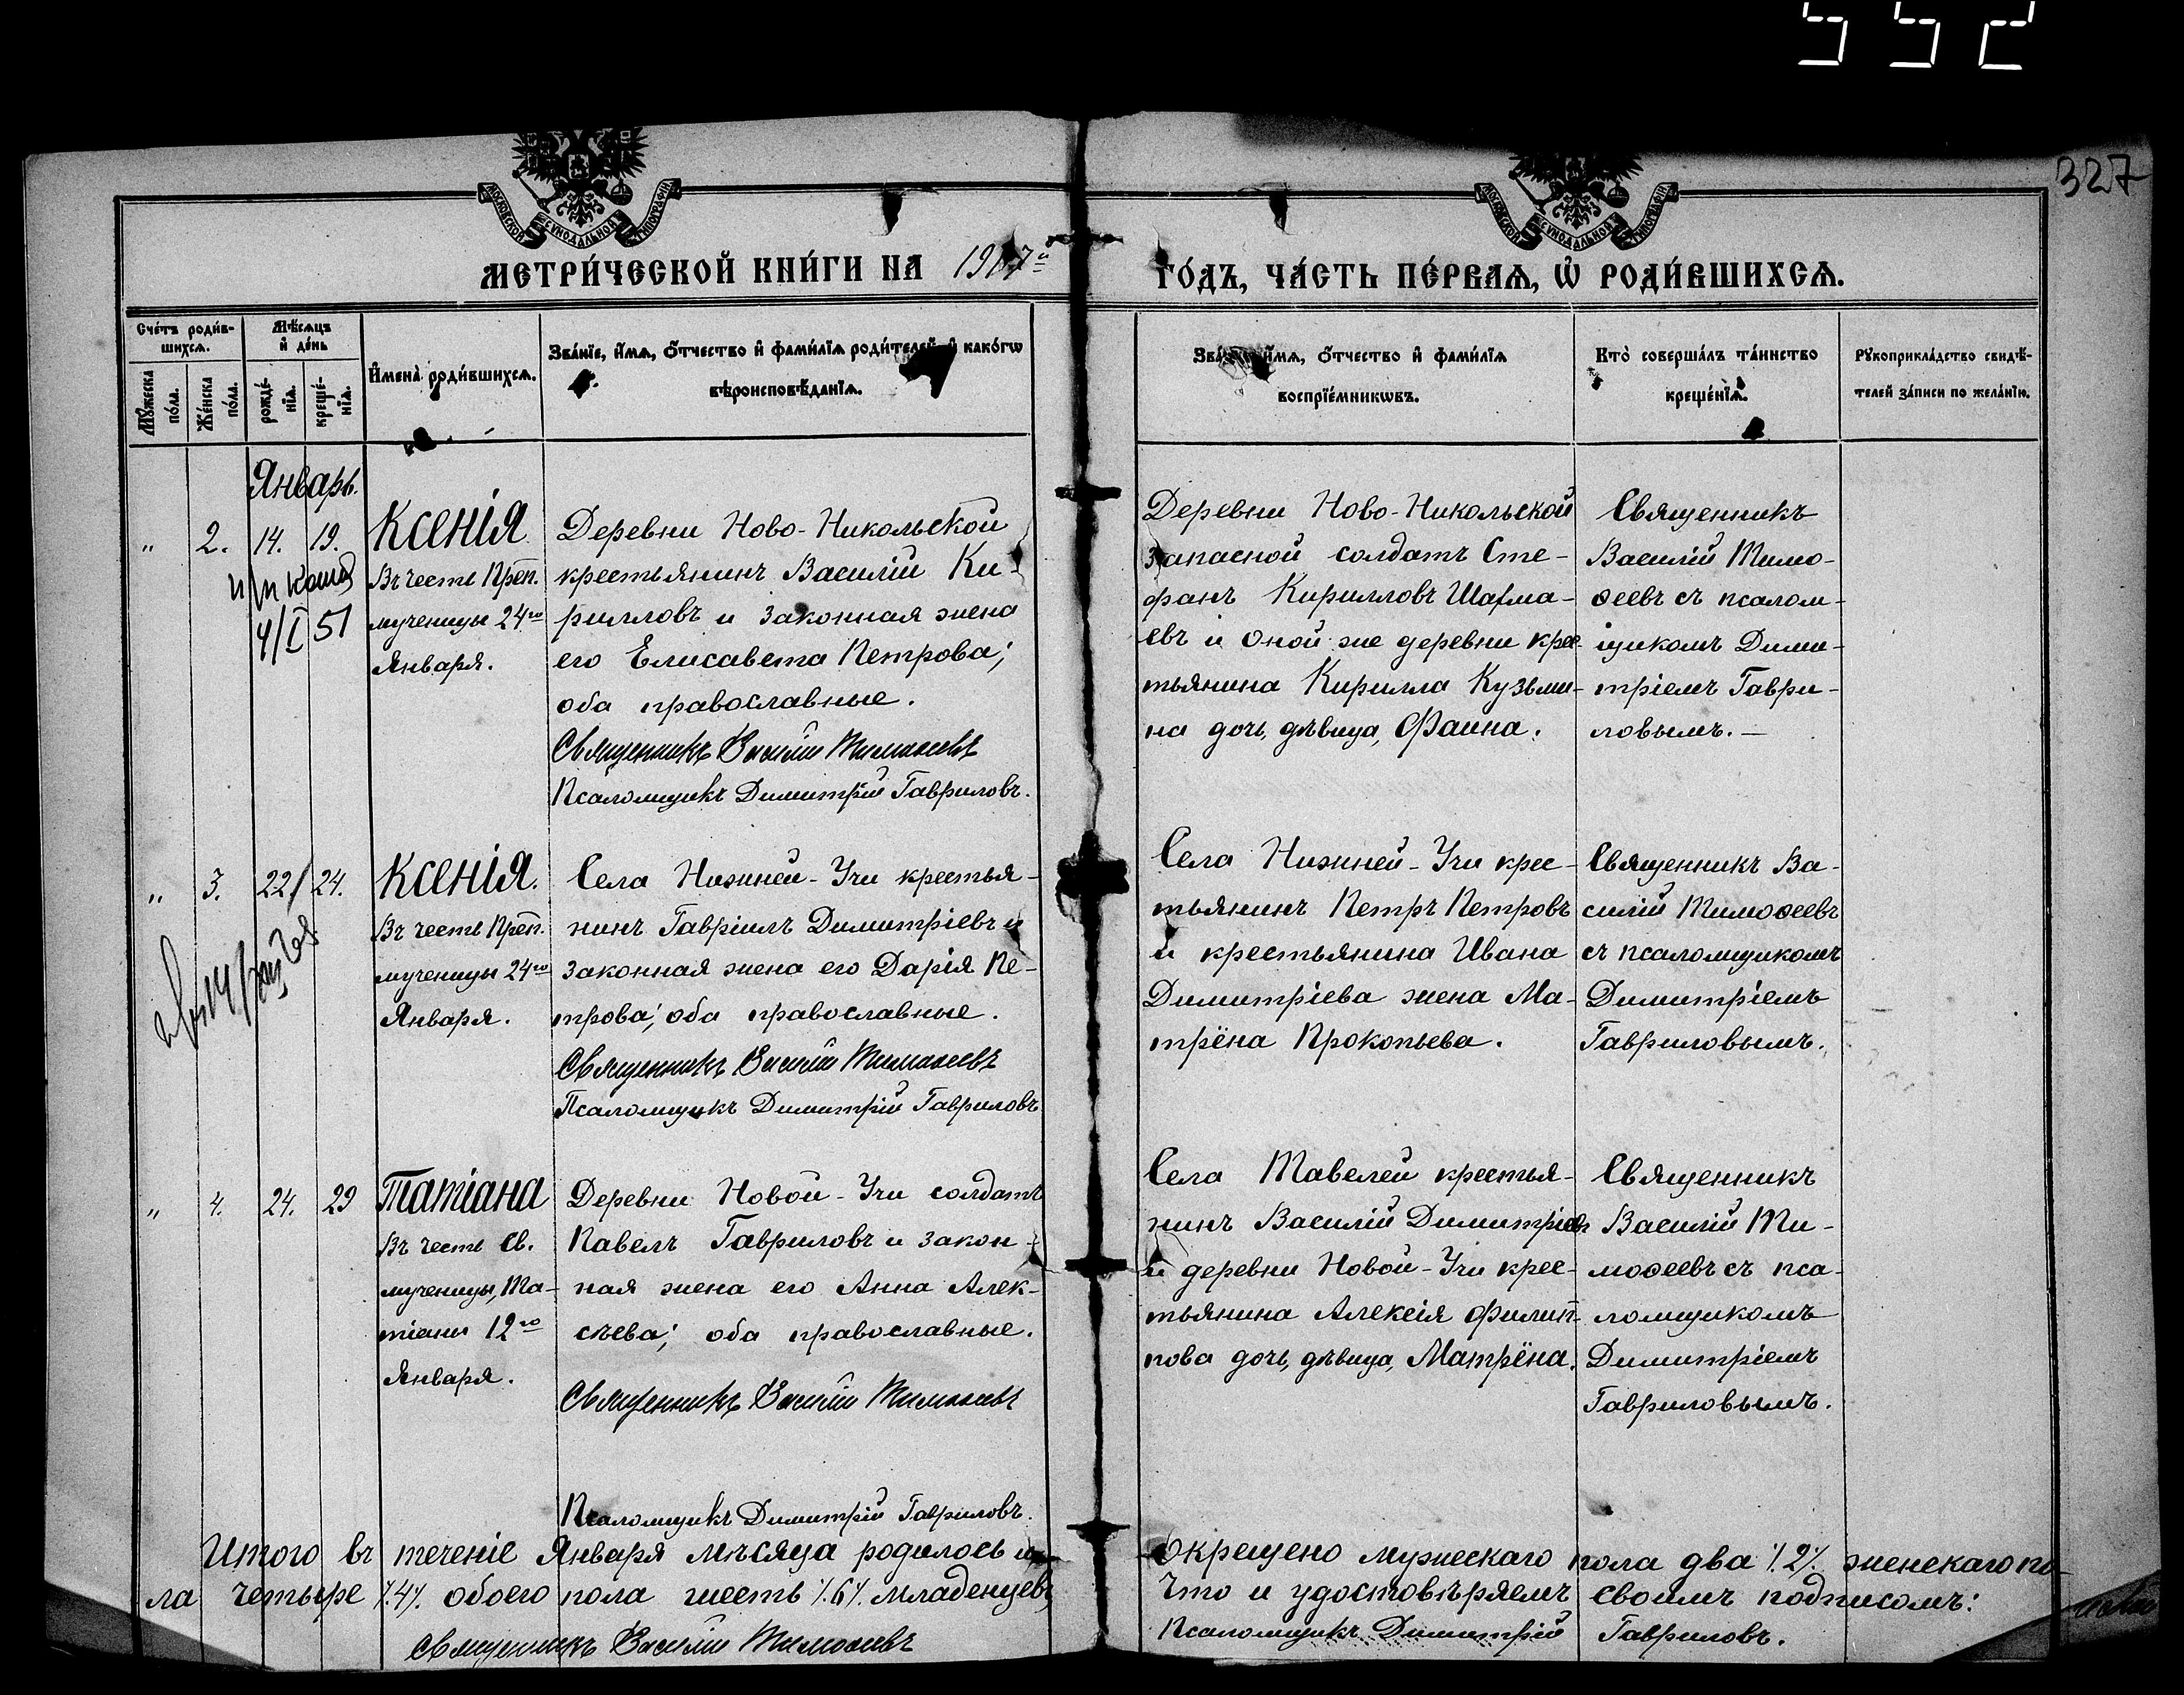 552
327
МОСКОВСКОЙ СѴНОДАЛЬНОЙ ТИПОГРАФІИ
МОСКОВСКОЙ СѴНОДАЛЬНОЙ ТИПОГРАФІИ
МЕТРИ́ЧЕСКОЙ КНИ́ГИ НА 1907й ГО́ДЪ, ЧА́СТЬ ПЕ́РВАѦ, Ѡ҆ РОДИ́ВШИХСѦ.
Сче́тъ роди́в-
шихсѧ.
Мꙋ́жеска
по́ла.
Же́нска
по́ла.
Мѣ́сѧцъ
и҆ де́нь
рожде́-
нїѧ.
креще́-
нїѧ.
И҆мена̀ роди́вшихсѧ.
Зва́нїе, и҆́мѧ, ѻ҆́тчество и҆ фами́лїѧ роди́телей, и҆ како́гѡ
вѣроисповѣ́данїѧ.
и҆́мѧ, ѻ҆́тчество и҆ фами́лїѧ
воспрїе́мникѡвъ.
Кто̀ соверша́лъ та́инство
креще́нїѧ.
Рꙋкоприкла́дство свидѣ́-
телей за́писи по жела́нїю.
Январь.
" 2. 14. 19.
4/I 51
Ксенія
Въ честь Преп.
мученицы 24го
Января.
Деревни Ново-Никольской
крестьянинъ Василій Ки-
рилловъ и законная жена
его Елисавета Петрова;
оба православные.
Священникъ Василій Тимоѳеевъ
Псаломщикъ Димитрій Гавриловъ.
Деревни Ново-Никольской
запасной солдатъ Сте-
фанъ Кирилловъ Шатма-
евъ и оной же деревни крес-
тьянина Кирилла Кузьми-
на дочь, дѣвица, Фаина.
Священникъ
Василій Тимо-
ѳеевъ съ псалом-
щикомъ Дими-
тріемъ Гаври-
ловымъ. —
" 3. 22/ 24.
Ксенія.
Въ честь Преп.
мученицы 24го
Января.
Села Нижней-Учи крестья-
нинъ Гавріилъ Димитріевъ и
законная жена его Дарія Пе-
трова; оба православные.
Священникъ Василій Тимоѳеевъ
Псаломщикъ Димитрій Гавриловъ
Села Нижней-Учи крес-
тьянинъ Петръ Петровъ
и крестьянина Ивана
Димитріева жена Ма-
трёна Прокопьева.
Священникъ Ва-
силій Тимоѳеевъ
съ псаломщикомъ
Димитріемъ
Гавриловымъ.
" 4. 24. 29
Татіана
Въ честь св.
мученицы, Та-
тіаны 12го
Января.
Деревни Новой-Учи солдатъ
Павелъ Гавриловъ и закон-
ная жена его Анна Алек-
сѣева; оба православные.
Священникъ Василій Тимоѳеевъ
Псаломщикъ Димитрій Гавриловъ.
Села Тавелей крестья-
нинъ Василій Димитріевъ
и деревни Новой-Учи крес-
тьянина Алексія Филип-
пова дочь, дѣвица, Матрёна.
Священникъ
Василій Ти-
моѳеевъ съ пса-
ломщикомъ
Димитріемъ
Гавриловымъ.
Итого въ теченіе Января мѣсяца родилось и окрещено мужескаго пола два /.2/. женскаго по-
ла четыре /.4/. обоего пола шесть /.6/. младенцевъ, Что и удостовѣряемъ своимъ подписомъ:
Священникъ Василій Тимоѳеевъ Псаломщикъ Димитрій Гавриловъ.